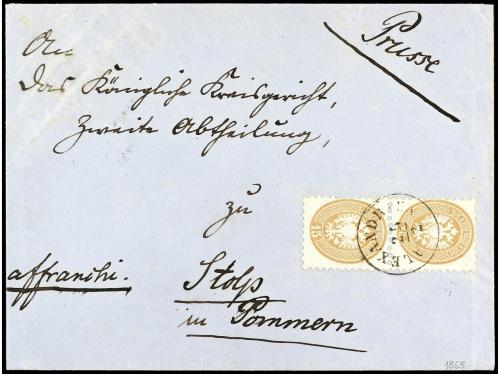 Prusse
An
das Königliche Kreisgericht,
Zweite Abtheilung,
zu
Stolp
affranchi.
in Pommern
15
ALEXANDRIEN
1865